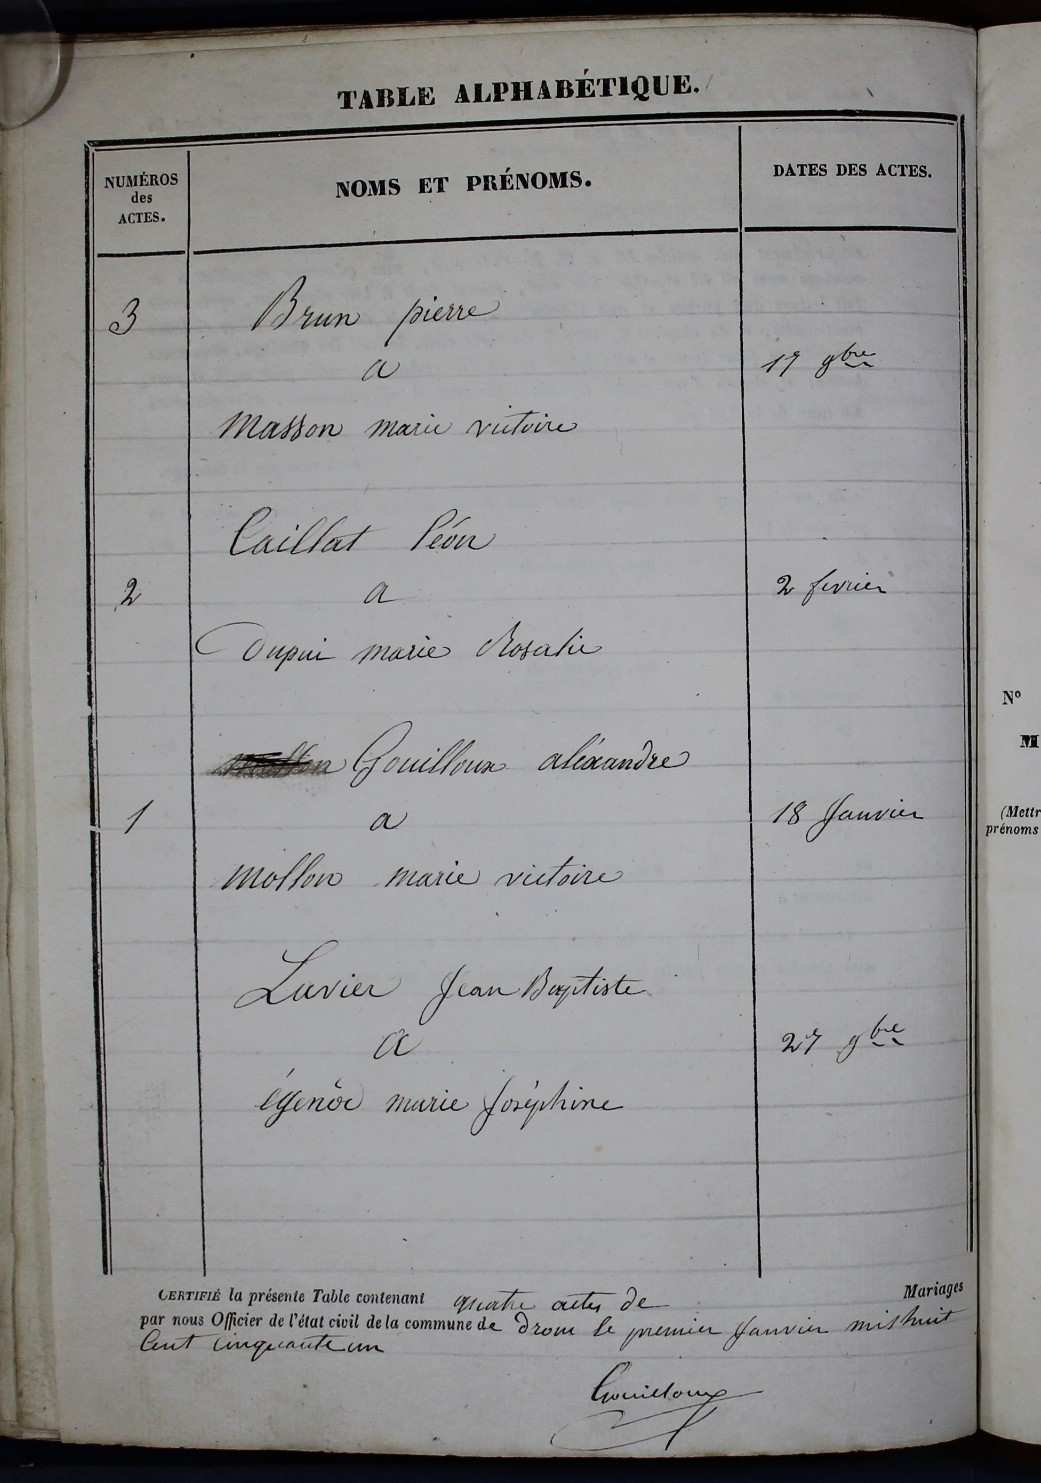 TABLE ALPHABÉTIQUE.
NUMÉROS
des
ACTES.
NOMS ET PRÉNOMS.
DATES DES ACTES.
3
Brun pierre
a
17 9bre
Masson marie victoire
Caillat Léon
2
a
2 fevrier
Dupui marie Rosalie
Gouilloux aléxandre
1
a
18 Janvier
Mollon marie victoire
Luvier Jean Baptiste
a
27 9bre
marie Joséphine
CERTIFIÉ la présente Table contenant quatre actes de Mariages
par nous Officier de l'état civil de la commune de drom le premier Janvier mil huit
Cent cinquante un
Gouilloux
N°
M
(Mettr
prénoms